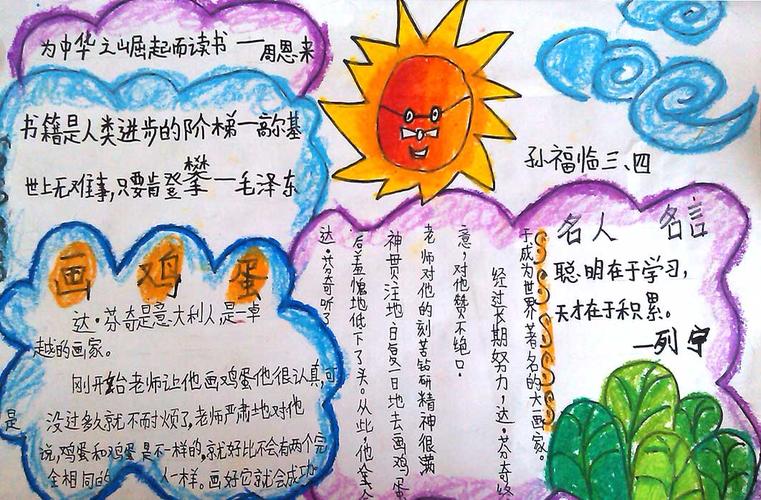 为中华之崛起而读书 —周恩来
书籍是人类进步的阶梯—高尔基
世上无难事,只要肯登攀—毛泽东
孙福临三、四
画鸡蛋
达·芬奇是意大利人,是一卓
越的画家。
刚开始老师让他画鸡蛋他很认真,可
是没过多久就不耐烦了,老师严肃地对他
说,鸡蛋和鸡蛋是不一样的,就好比不会有两个完
全相同的人一样。画好它就会成功
达·芬奇听了
后羞愧地低下了头。从此,他全
神贯注地日复一日地去画鸡蛋
老师对他的刻苦钻研精神很满
意,对他赞不绝口。
经过长期努力,达·芬奇终
于成为世界著名的大画家。
名人 名言
聪明在于学习,
天才在于积累。
—列宁